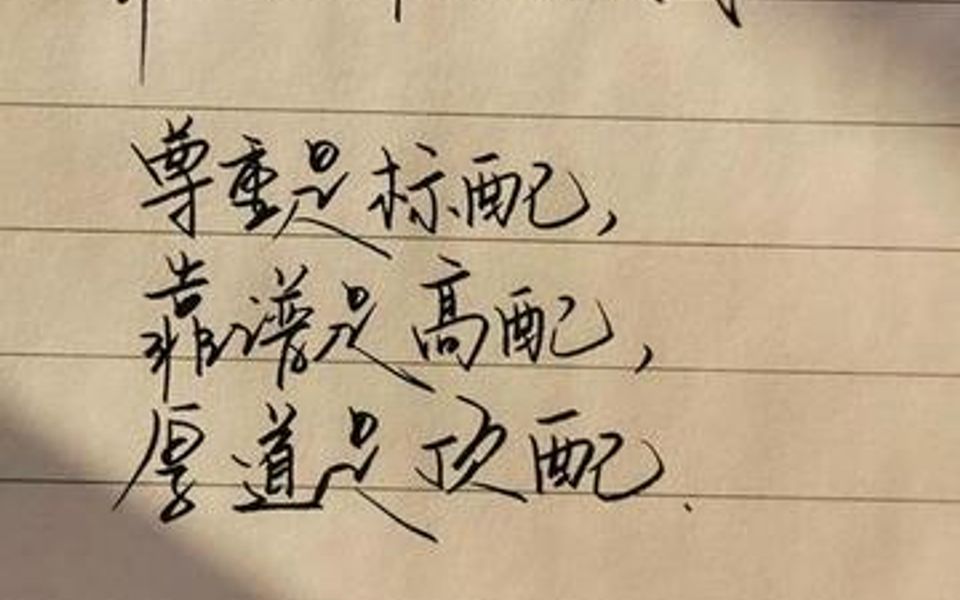 尊重是标配,
靠谱是高配,
厚道是顶配.